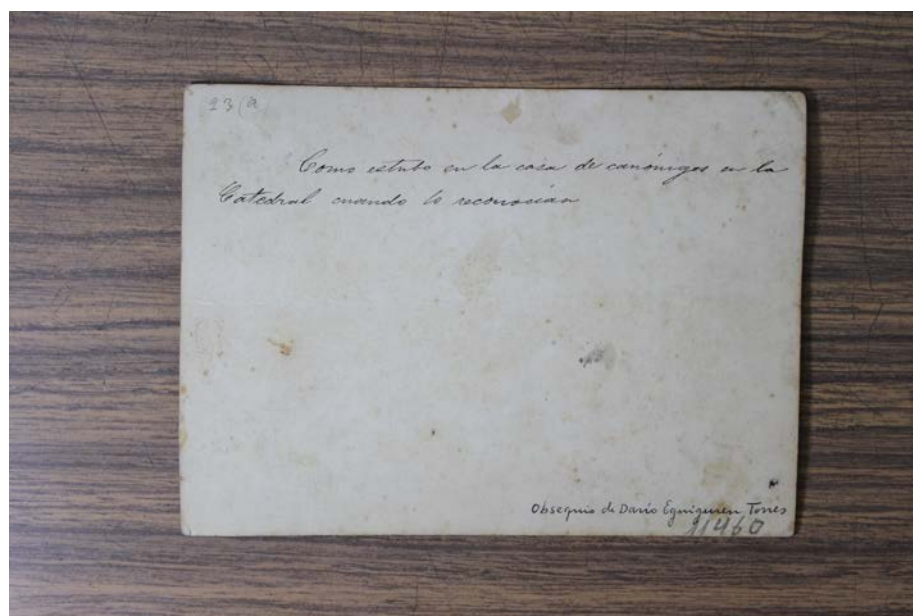 23 (a)
Como estubo en la casa de canónigos en la
Catedral cuando lo reconocían
Obsequio de Darío Eguiguren Torres
11460